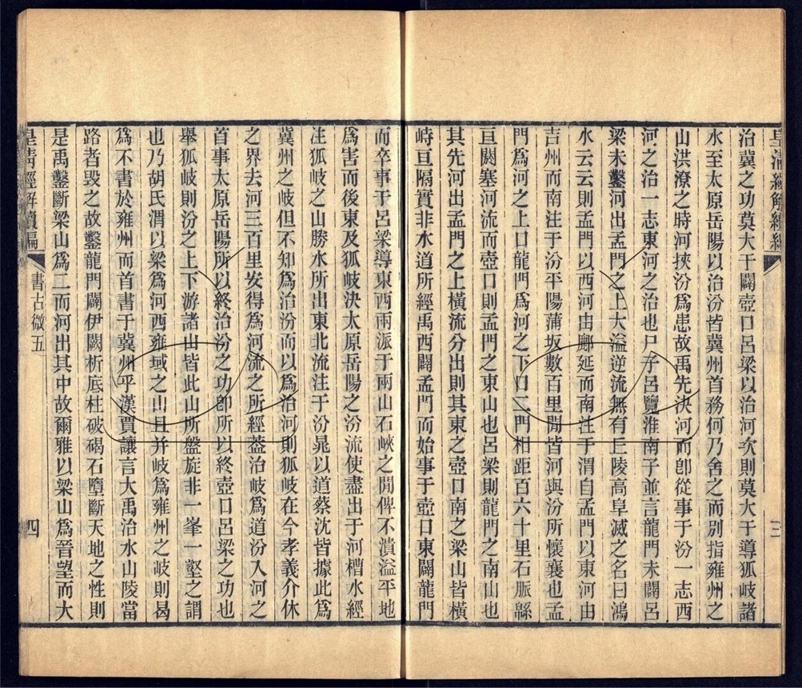 皇清經解續編
三
治冀之功莫大于闢壺口呂梁以治河次則莫大于導狐岐諸
水至太原岳陽以治汾皆冀州首務何乃舍之而別指雍州之
山洪潦之時河挾汾爲患故禹先決河而卽從事于汾一志西
河之治一志東河之治也尸子呂覽淮南子並言龍門未闢呂
梁未鑿河出孟門之上大溢逆流無有丘陵高阜滅之名曰鴻
水云云則孟門以西河由鄜延而南注于渭自孟門以東河由
吉州而南注于汾平陽蒲坂數百里閒皆河與汾所懷襄也孟
門爲河之上口龍門爲河之下口二門相距百六十里石脈緜
亘闕塞河流而壺口則孟門之東山也呂梁則龍門之南山也
其先河出孟門之上橫流分出則其東之壺口南之梁山皆橫
峙亘隔實非水道所經禹西闢孟門而始事于壺口東闢龍門
而卒事于呂梁導東西兩派于兩山石峽之閒俾不潰溢平地
爲害而後東及狐岐決太原岳陽之汾流使盡出于河槽水經
注狐岐之山勝水所出東北流注于汾晁以道蔡沈皆據此爲
冀州之岐但不知爲治汾而以爲治河則狐岐在今孝義介休
之界去河三百里安得爲河流之所經葢治岐爲道汾入河之
首事太原岳陽所以終治汾之功卽所以終壺口呂梁之功也
舉狐岐則汾之上下游諸山皆此山所盤旋非一峯一壑之謂
也乃胡氏渭以梁爲河西雍域之山且并岐爲雍州之岐則曷
爲不書於雍州而首書于冀州乎漢賈讓言大禹治水山陵當
路者毀之故鑿龍門闢伊闕析底柱破碣石墮斷天地之性則
是禹鑿斷梁山爲二而河出其中故爾雅以梁山爲晉望而大
皇清經解續編
書古微五
四